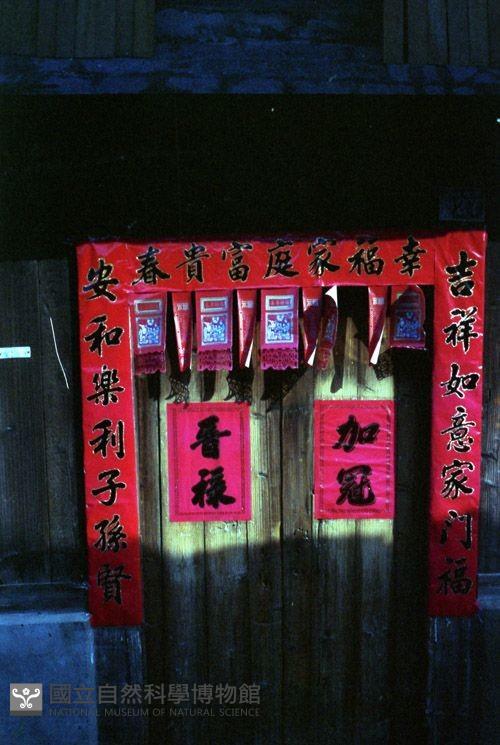 幸福家庭富貴春
吉祥如意家门福
安和樂利子孫賢
加冠
晋禄
國立自然科學博物館
NATIONAL MUSEUM OF NATURAL SCIENCE